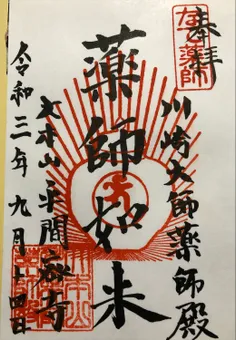 奉拝
川崎大師薬師殿
薬師如来
大本山平間寺
令和三年九月十四日